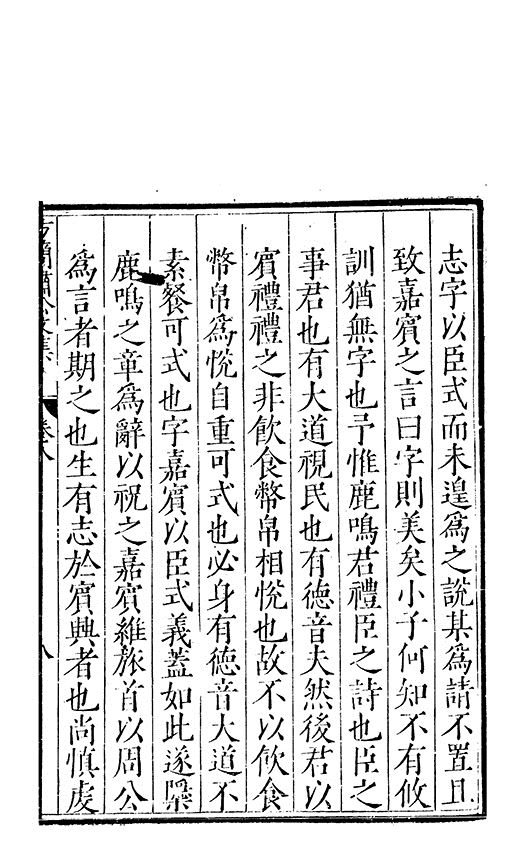 志字以臣式而未遑爲之說某爲請不置且
致嘉賓之言曰字則美矣小子何知不有攸
訓猶無字也予惟鹿鳴君禮臣之詩也臣之
事君也有大道視民也有德音夫然後君以
賓禮禮之非飲食幣帛相悅也故不以飲食
幣帛爲悅自重可式也必身有德音大道不
素餐可式也字嘉賓以臣式義蓋如此遂檃
鹿鳴之章爲辭以祝之嘉賓維旅首以周公
爲言者期之也生有志於賓興者也尚慎虔
方簡肅公文集
卷八
八